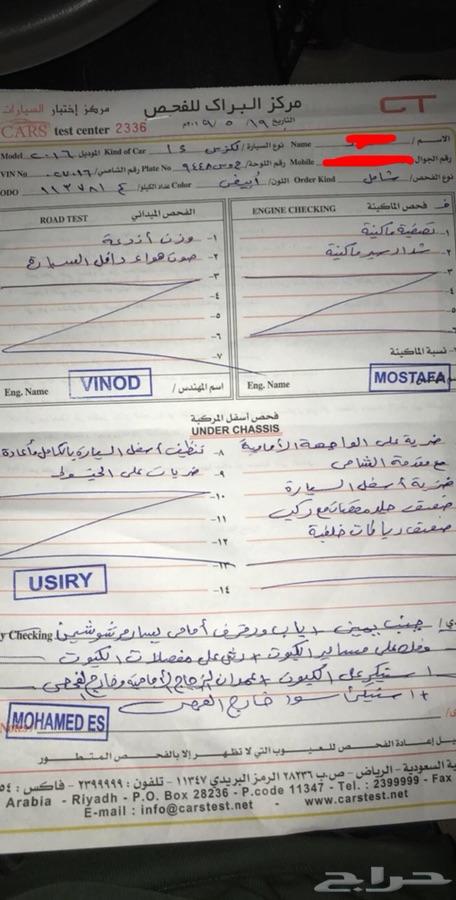 مركز البراك للفحص
مركز إختبار السيارات
CT
CARS test center 2336
التاريخ ١٩ / ٥ / ٢٠١٩م
الاسم / Name نوع السيارة / Kind of Car لكزس IS الموديل Model ٢٠١٦
رقم الجوال Mobile رقم اللوحة / Plate No رقم الشاصي / VIN No
نوع الفحص / شامل Order Kind اللون / أبيض Color عداد الكيلو / ١١٣٧٨١ ODO
فحص الماكينة ENGINE CHECKING
١- تصفية ماكينة
٢- شداد سير ماكينة
٣-
٤-
٥-
٦-
نسبة الماكينة :
MOSTAFA
Eng. Name
الفحص الميداني ROAD TEST
١- وزن أذرعة
٢- صوت هواء داخل السيارة
٣-
٤-
٥-
٦-
٧-
اسم المهندس / VINOD Eng. Name
فحص أسفل المركبة
UNDER CHASSIS
ضربة على الواجهة الأمامية
مع مقدمة الشاص
ضربة أسفل السيارة
ضعف جلد مقصات مع ركب
ضعف رباطات خلفية
٨- تنظيف أسفل السيارة بالكامل مع إعادة
٩- ضربات على الجنوط
١٠-
١١-
١٢-
١٣-
١٤-
USIRY
y Checking
جنب يمين + باب ورفرف أمامي يسار مرشوشين
وفك على مسامير الكبوت + رش على مفصلات الكبوت
استيكر على الكبوت + عمدان الزجاج الأمامية وخارج الفحص
خارج الفحص
MOHAMED ES
إعادة الفحص للعيوب التي لا تظهر إلا بالفحص المتطور
ية السعودية - الرياض - ص.ب ٢٨٢٣٦ الرمز البريدي ١١٣٤٧ - تلفون : ٢٣٩٩٩٩٩ - فاكس : ٥٤
Arabia - Riyadh - P.O. Box 28236 - P.code 11347 - Tel. : 2399999 - Fax
E-mail : info@carstest.net - www.carstest.net
حراج